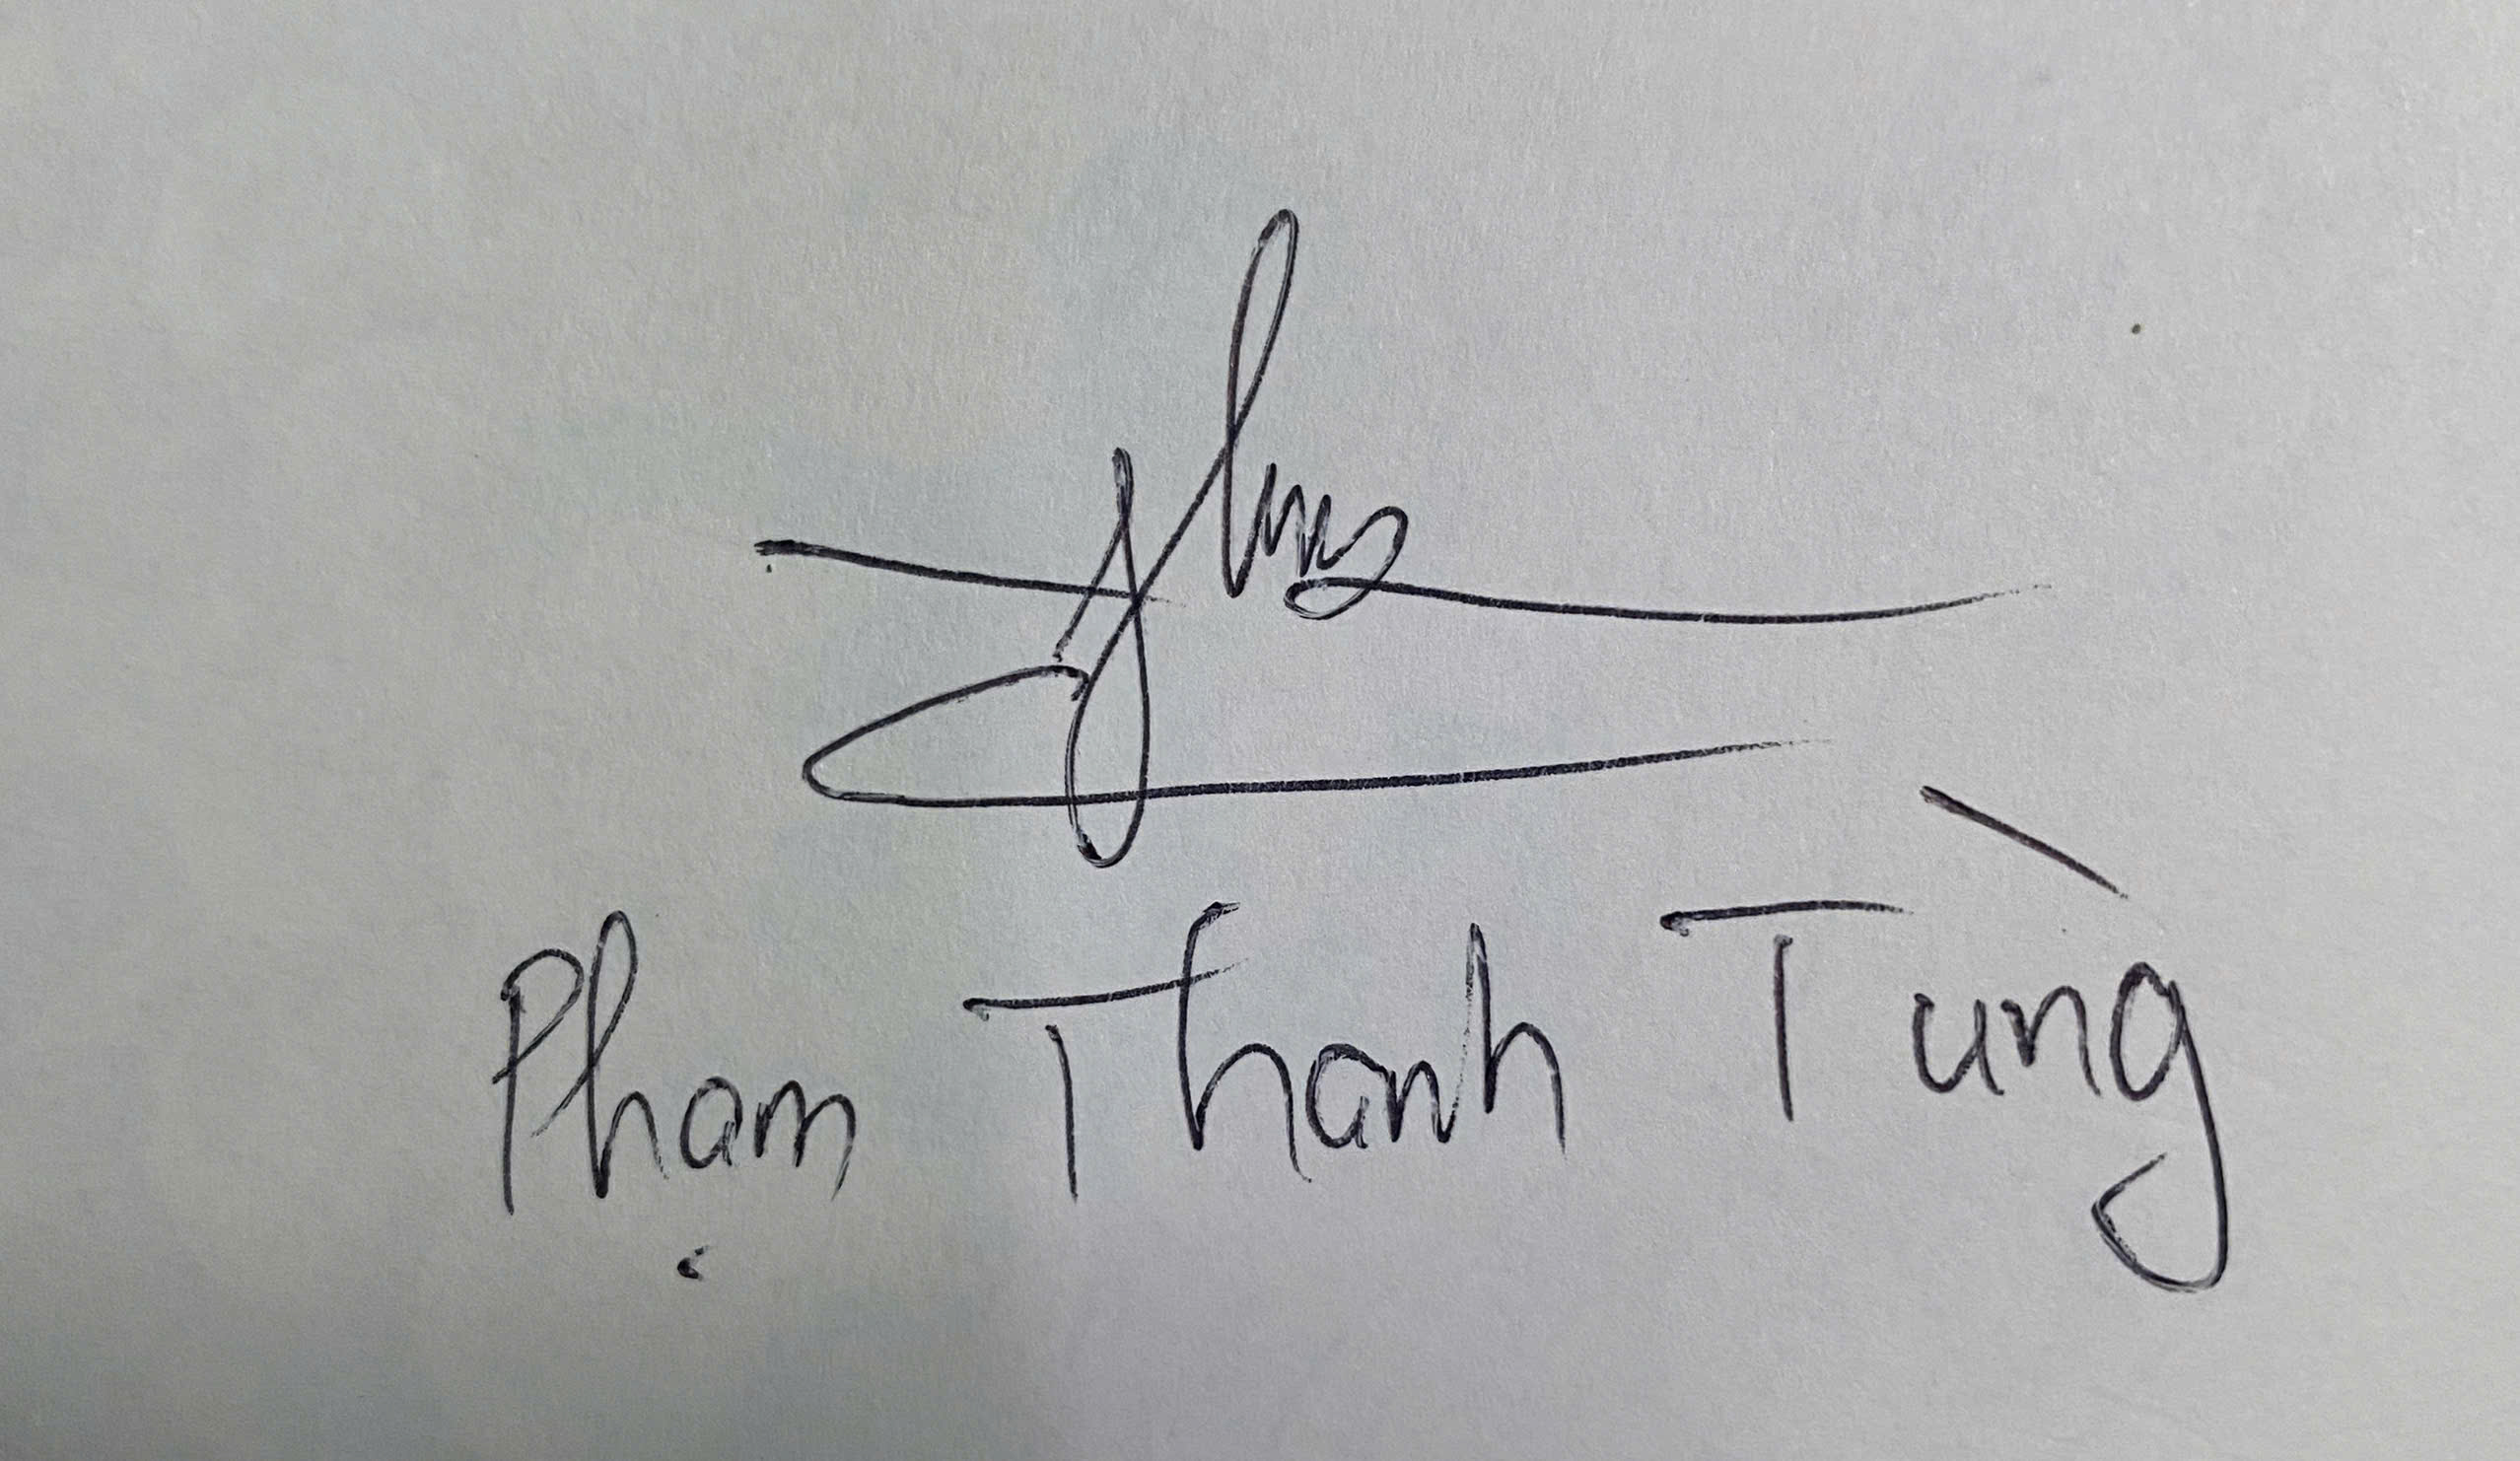 Phạm Thanh Tùng